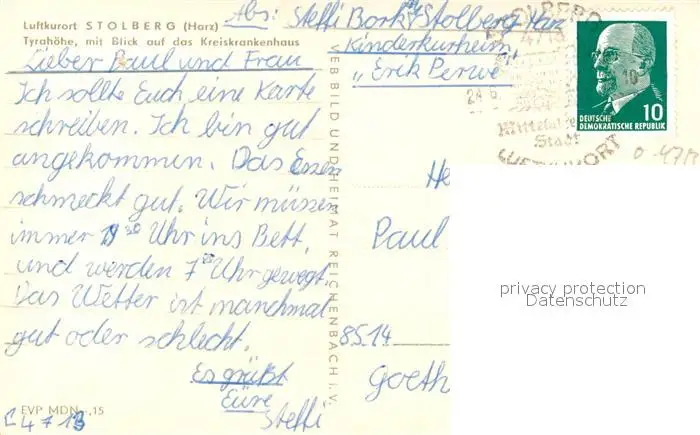 Luftkurort STOLBERG (Harz)
Tyrahöhe, mit Blick auf das Kreiskrankenhaus
Abs: Steffi Bork, Stolberg Harz
Kinderkurheim
"Erik Perwe"
Lieber Paul und Frau
Ich sollte Euch eine Karte
schreiben. Ich bin gut
angekommen. Das Essen
schmeckt gut. Wir müssen
immer 19 30 Uhr ins Bett,
und werden 7 Uhr gewegt.
Das Wetter ist manchmal
gut oder schlecht.
Es grüßt
Eure
Steffi
EVP MDN -,15
BILD UND HEIMAT REICHENBACH i. V.
10
DEUTSCHE
DEMOKRATISCHE REPUBLIK
STOLBERG
Stadt
LUFTKURORT
He
Paul
8514
Goeth
privacy protection
Datenschutz